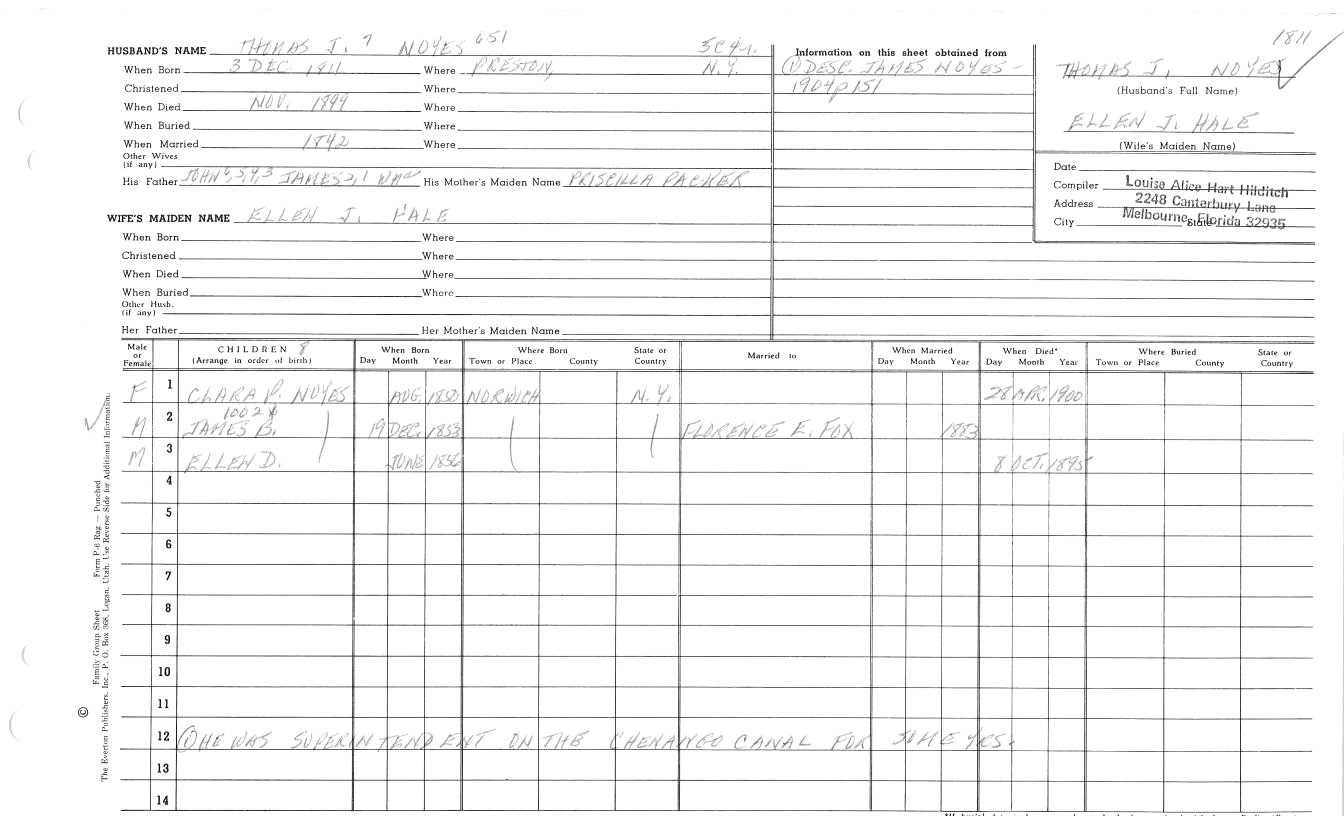 1811
HUSBAND'S NAME THOMAS J. 7 NOYES 651
When Born 3 DEC 1811 Where PRESTON, N.Y.
Christened Where
When Died NOV. 1899 Where
When Buried Where
When Married 1842 Where
Other Wives
(if any)
His Father JOHN 6,5,4,3 JAMES 2,1 Wm His Mother's Maiden Name PRISCILLA PACKER
WIFE'S MAIDEN NAME ELLEN J. HALE
When Born Where
Christened Where
When Died Where
When Buried Where
Other Husb.
(if any)
Her Father Her Mother's Maiden Name
Information on this sheet obtained from
(1) DESC. JAMES NOYES -
1904 p 151
THOMAS J. NOYES
(Husband's Full Name)
ELLEN J. HALE
(Wife's Maiden Name)
Date
Compiler Louise Alice Hart Hilditch
Address 2248 Canterbury Lane
City State Melbourne, Florida 32935
Male or Female CHILDREN 8 (Arrange in order of birth) When Born Day Month Year Where Born Town or Place County State or Country Married to When Married Day Month Year When Died* Day Month Year Where Buried Town or Place County State or Country
F 1 CLARA P. NOYES AUG. 1850 NORWICH N.Y. 28 APR. 1900
1002
M 2 JAMES B. 19 DEC. 1853 FLORENCE E. FOX 1883
M 3 ELLEN D. JUNE 1856 8 OCT. 1895
4
5
6
7
8
9
10
11
12 (1) HE WAS SUPERINTENDENT ON THE CHENANGO CANAL FOR SOME YRS.
13
14
Family Group Sheet Form P-6 Rag — Punched
© The Everton Publishers, Inc., P. O. Box 368, Logan, Utah. Use Reverse Side for Additional Information.